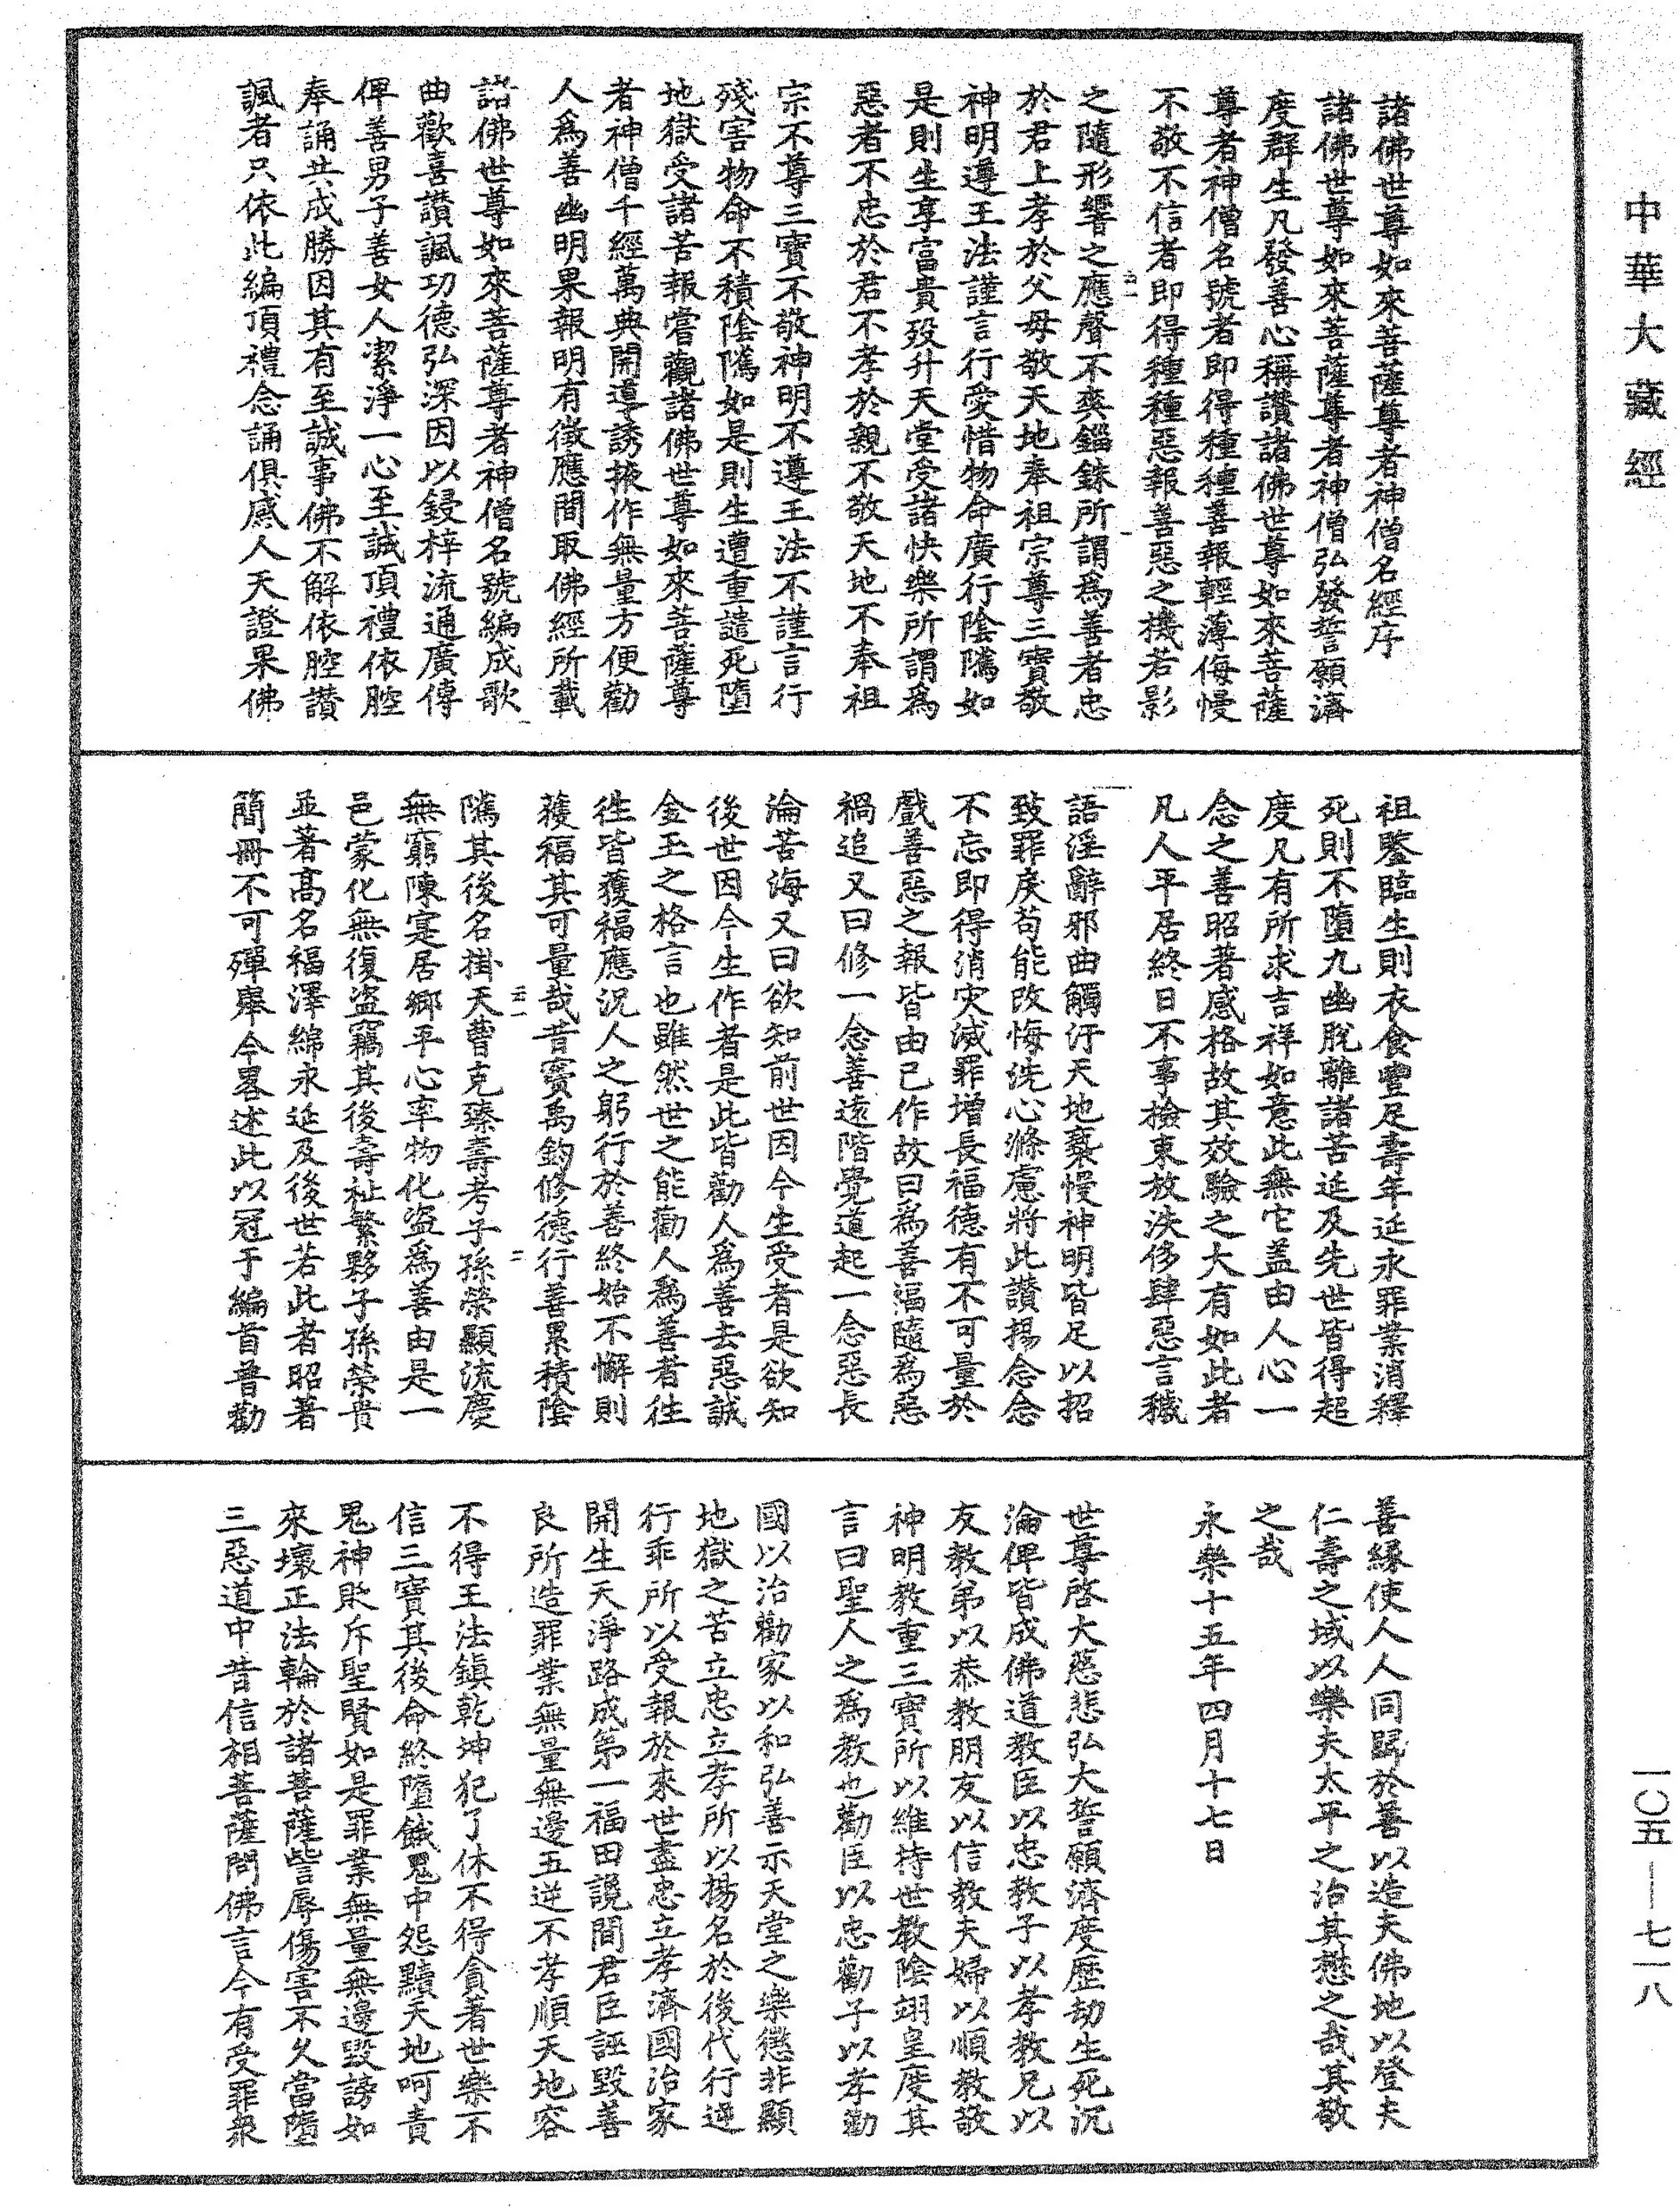 中華大藏經
諸佛世尊如來菩薩尊者神僧名經序
諸佛世尊如來菩薩尊者神僧弘發誓願濟
度群生凡發善心稱讚諸佛世尊如來菩薩
尊者神僧名號者即得種種善報輕薄侮慢
不敬不信者即得種種惡報善惡之機若影
之隨形響之應聲不爽錙銖所謂為善者忠
於君上孝於父母敬天地奉祖宗尊三寶敬
神明遵王法謹言行愛惜物命廣行陰隲如
是則生享富貴歿升天堂受諸快樂所謂為
惡者不忠於君不孝於親不敬天地不奉祖
宗不尊三寶不敬神明不遵王法不謹言行
殘害物命不積陰隲如是則生遭重譴死墮
地獄受諸苦報嘗觀諸佛世尊如來菩薩尊
者神僧千經萬典開導誘掖作無量方便勸
人為善幽明果報明有徵應間取佛經所載
諸佛世尊如來菩薩尊者神僧名號編成歌
曲歡喜讚諷功德弘深因以鋟梓流通廣傳
俾善男子善女人潔淨一心至誠頂禮依腔
奉誦共成勝因其有至誠事佛不解依腔讚
諷者只依此編頂禮念誦俱感人天證果佛
祖鑒臨生則衣食豐足壽年延永罪業消釋
死則不墮九幽脫離諸苦延及先世皆得超
度凡有所求吉祥如意此無它蓋由人心一
念之善昭著感格故其效驗之大有如此者
凡人平居終日不事撿束放泆侈肆惡言穢
語淫辭邪曲觸汙天地褻慢神明皆足以招
致罪戾苟能改悔洗心滌慮將此讚揚念念
不忘即得消灾滅罪增長福德有不可量於
戲善惡之報皆由己作故曰為善福隨為惡
禍追又曰修一念善遠階覺道起一念惡長
淪苦海又曰欲知前世因今生受者是欲知
後世因今生作者是此皆勸人為善去惡誠
金玉之格言也雖然世之能勸人為善者往
往皆獲福應況人之躬行於善終始不懈則
獲福其可量哉昔竇禹鈞修德行善累積陰
隲其後名掛天曹克臻壽考子孫榮顯流慶
無窮陳寔居鄉平心率物化盜為善由是一
邑蒙化無復盜竊其後壽祉繁夥子孫榮貴
並著高名福澤綿永延及後世若此者昭著
簡冊不可殫舉今畧述此以冠于編首普勸
善緣使人人同歸於善以造夫佛地以登夫
仁壽之域以樂夫太平之治其懋之哉其敬
之哉
永樂十五年四月十七日
世尊啓大慈悲弘大誓願濟度歷劫生死沉
淪俾皆成佛道教臣以忠教子以孝教兄以
友教弟以恭教朋友以信教夫婦以順教敬
神明教重三寶所以維持世教陰翊皇度其
言曰聖人之為教也勸臣以忠勸子以孝勸
國以治勸家以和弘善示天堂之樂懲非顯
地獄之苦立忠立孝所以揚名於後代行逆
行乖所以受報於來世盡忠立孝濟國治家
開生天淨路成第一福田讒間君臣誣毀善
良所造罪業無量無邊五逆不孝順天地容
不得王法鎮乾坤犯了休不得貪著世樂不
信三寶其後命終墮餓鬼中怨黷天地呵責
鬼神毀斥聖賢如是罪業無量無邊毀謗如
來壞正法輪於諸菩薩訾辱傷害不久當墮
三惡道中昔信相菩薩問佛言今有受罪衆
一〇五—七一八